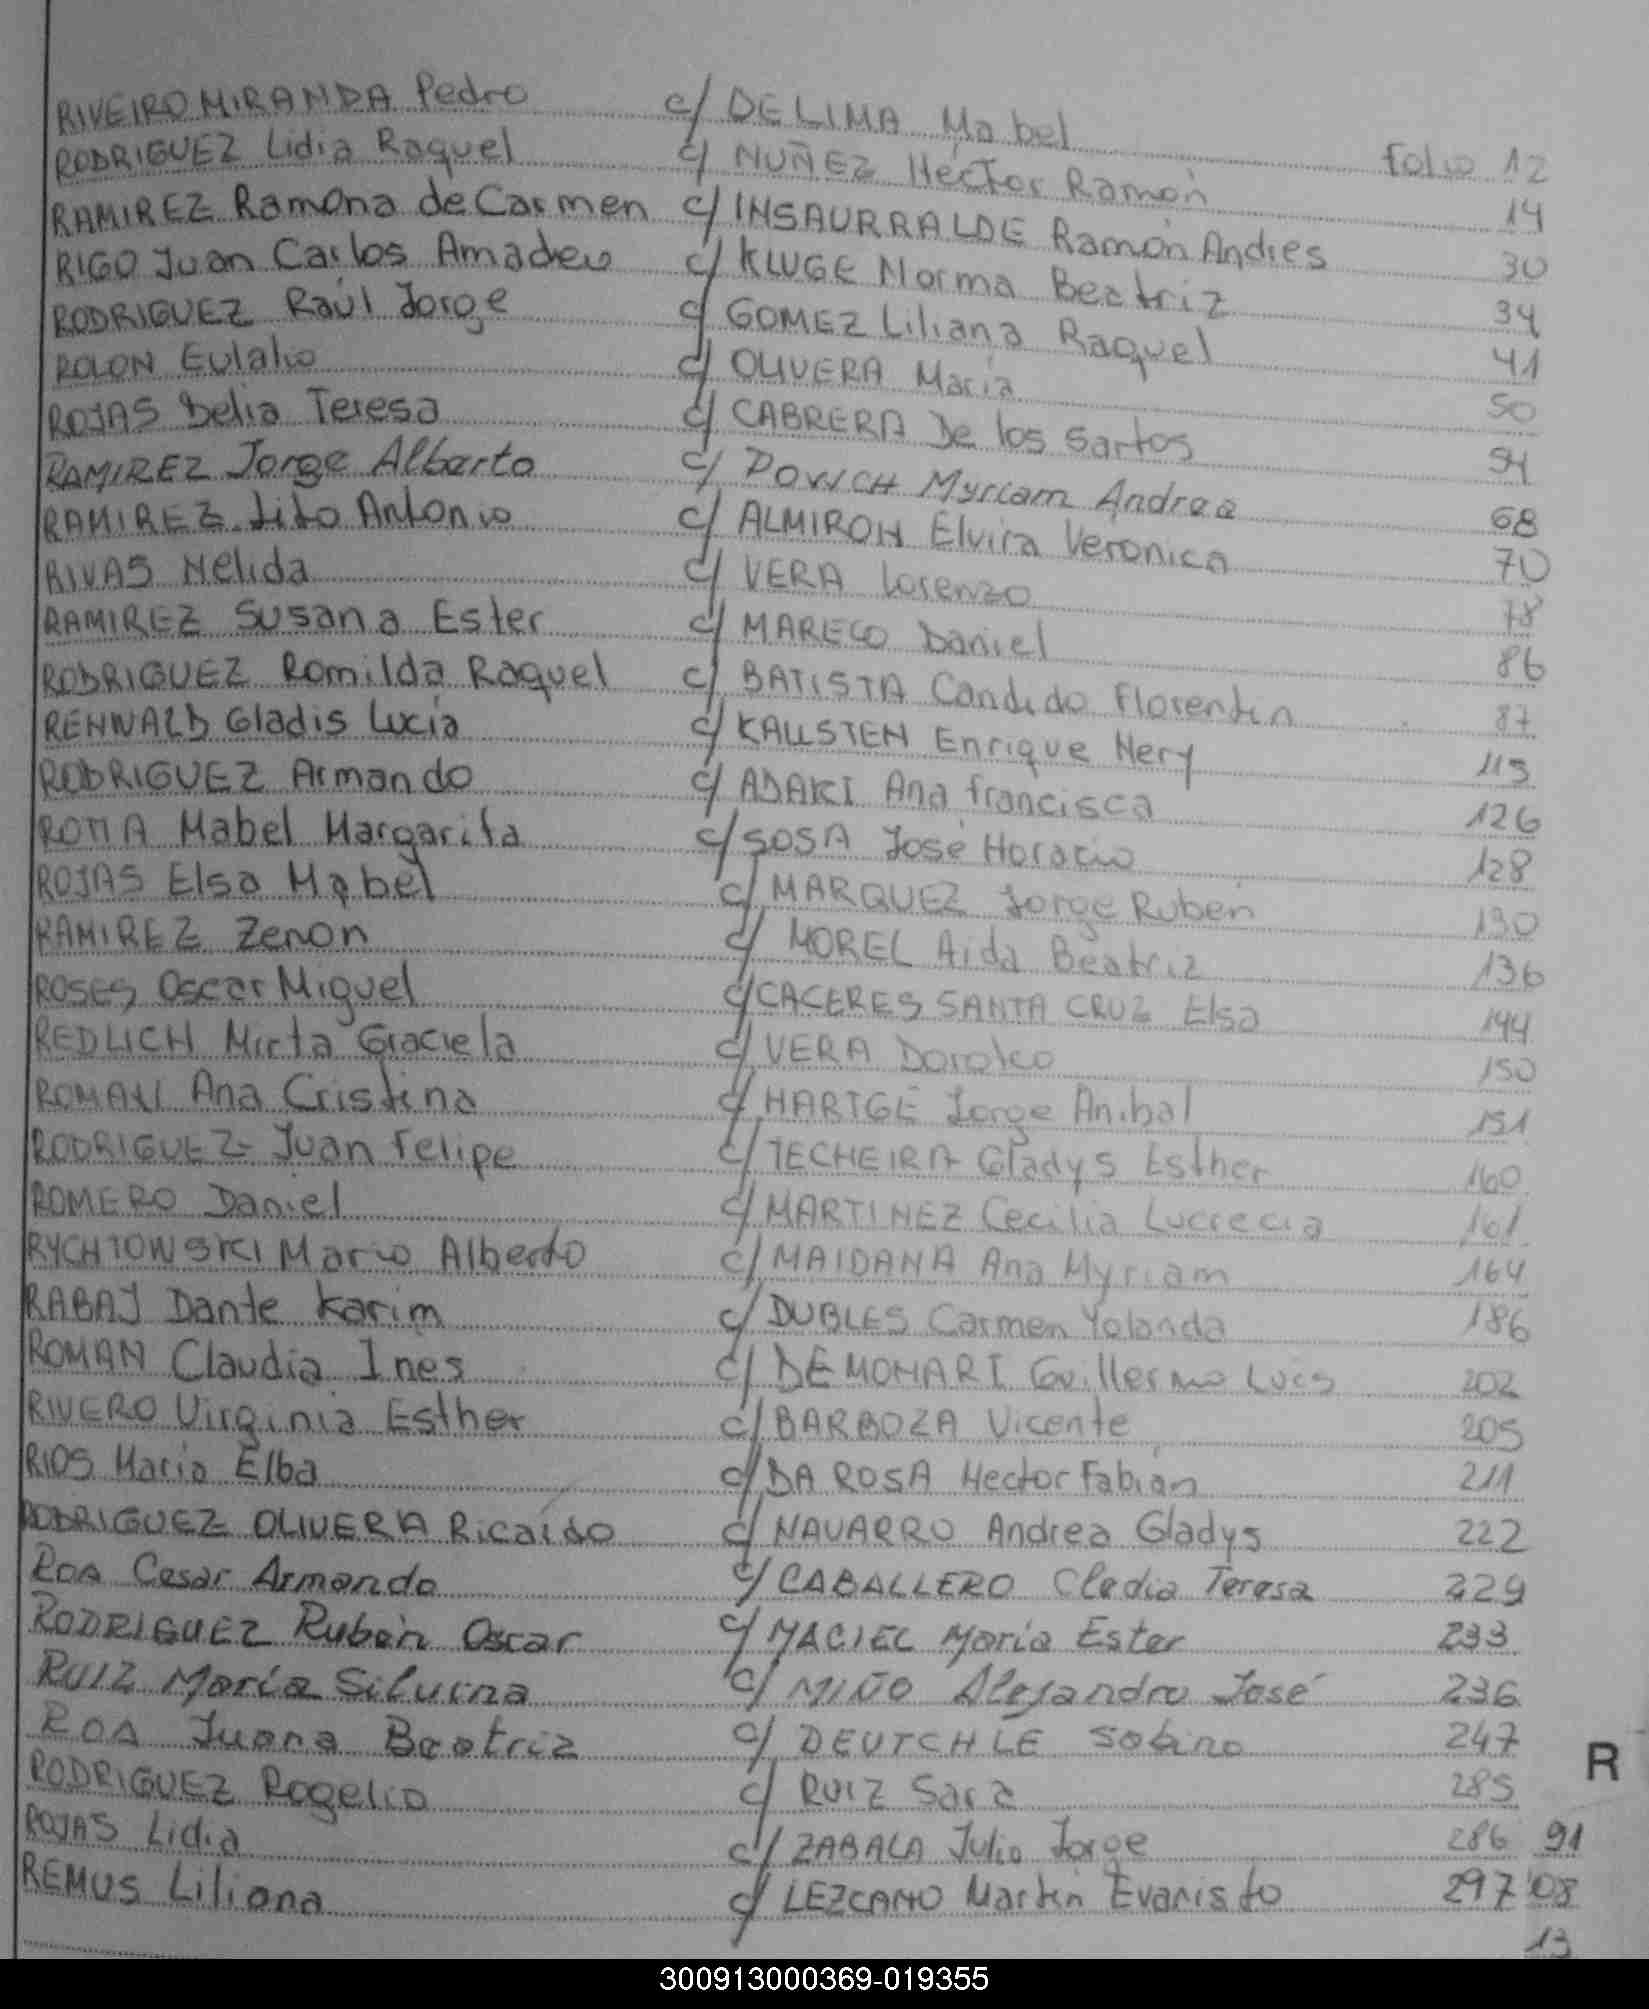 RIVEIRO MIRANDA Pedro c/ DE LIMA Mabel folio 12
RODRIGUEZ Lidia Raquel c/ NUÑEZ Héctor Ramón 14
RAMIREZ Ramona de Carmen c/ INSAURRALDE Ramón Andres 30
RIGO Juan Carlos Amadeo c/ KLUGE Norma Beatriz 34
RODRIGUEZ Raúl Jorge c/ GOMEZ Liliana Raquel 41
ROLON Eulalio c/ OLIVERA Maria 50
ROJAS Delia Teresa c/ CABRERA De los Santos 54
RAMIREZ Jorge Alberto c/ Myriam Andrea 68
RAMIREZ Tito Antonio c/ ALMIRON Elvira Veronica 70
RIVAS Nelida c/ VERA Lorenzo 78
RAMIREZ Susana Ester c/ MARECO Daniel 86
RODRIGUEZ Romilda Raquel c/ BATISTA Candido Florentin 87
RENWALD Gladis Lucia c/ KALLSTEN Enrique Nery 115
RODRIGUEZ Armando c/ ADAKI Ana francisca 126
ROTTA Mabel Margarita c/ SOSA José Horacio 128
ROJAS Elsa Mabel c/ MARQUEZ Jorge Rubén 130
RAMIREZ Zenon c/ MOREL Aida Beatriz 136
ROSES Oscar Miguel c/ CACERES SANTA CRUZ Elsa 144
REDLICH Mirta Graciela c/ VERA Doroteo 150
Ana Cristina c/ HARTGE Jorge Anibal 151
RODRIGUEZ Juan Felipe c/ TECHEIRA Gladys Esther 160
ROMERO Daniel c/ MARTINEZ Cecilia Lucrecia 161
RYCHTOWSKI Mario Alberto c/ MAIDANA Ana Myriam 164
RABAJ Dante Karim c/ DUBLES Carmen Yolanda 186
ROMAN Claudia Ines c/ DEMONARI Guillermo Luis 202
RIVERO Virginia Esther c/ BARBOZA Vicente 205
RIOS Maria Elba c/ DA ROSA Hector Fabián 211
RODRIGUEZ OLIVERA Ricardo c/ NAVARRO Andrea Gladys 222
ROA Cesar Armando c/ CABALLERO Cledia Teresa 229
RODRIGUEZ Rubén Oscar c/ MACIEL Maria Ester 233
RUIZ María Silvina c/ MIÑO Alejandro José 236
ROA Juana Beatriz c/ DEUTCHLE Sabino 247
RODRIGUEZ Rogelio c/ RUIZ Sara 285
R
ROJAS Lidia c/ ZABALA Julio Jorge 286 91
REMUS Liliana c/ LEZCANO Martin Evaristo 297 08
13
300913000369-019355